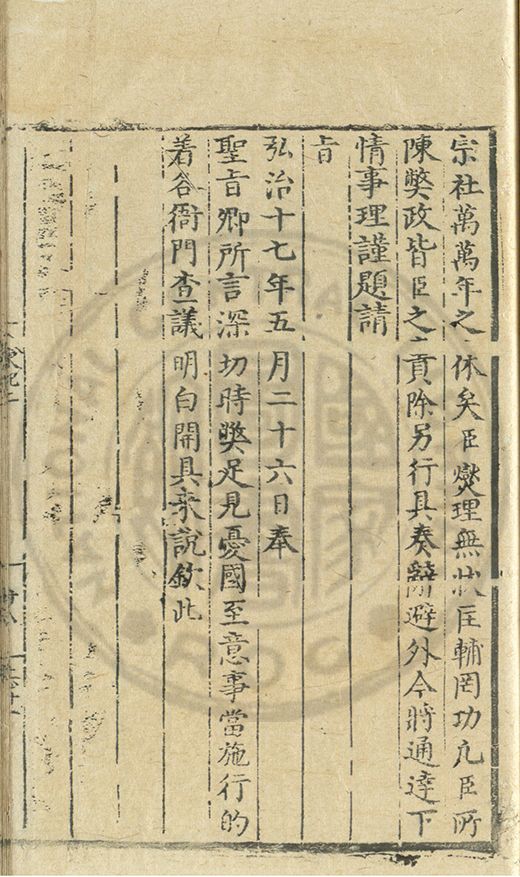 宗社萬萬年之休矣臣爕理無狀匡輔罔功凡臣所
陳弊政皆臣之責除另行具奏辭避外今將通達下
情事理謹題請
旨
弘治十七年五月二十六日奉
聖旨卿所言深切時弊足見憂國至意事當施行的
着各衙門查議明白開具来說欽此